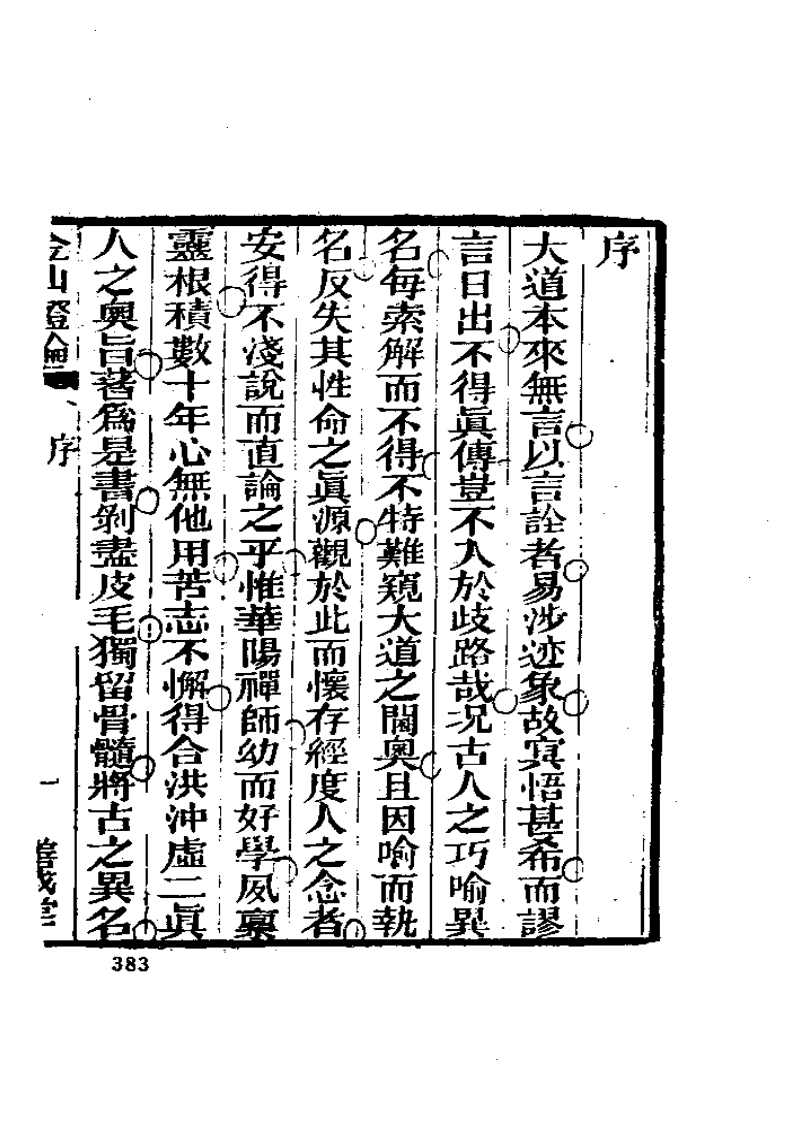 序
大道本來無言以言詮者易涉迹象故寘悟甚希而謬
言日出不得眞傳豈不入於歧路哉况古人之巧喻異
名每索解而不得不特難窺大道之閫奧且因喻而執
名反失其性命之眞源觀於此而懷存經度人之念者
安得不淺說而直論之乎惟華陽禪師幼而好學夙稟
靈根積數十年心無他用苦志不懈得合洪沖虛二眞
人之奧旨著爲是書剝盡皮毛獨留骨髓將古之異名
金山證論
序
一
善成堂
383